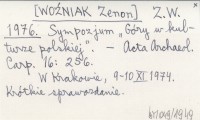 [WOŹNIAK Zenon] Z.W.
1976. Sympozjum „Góry w kul-
turze polskiej". – Acta Archaeol.
Carp. 16: 256.
W Krakowie, 9-10 XI 1974.
Krótkie sprawozdanie.